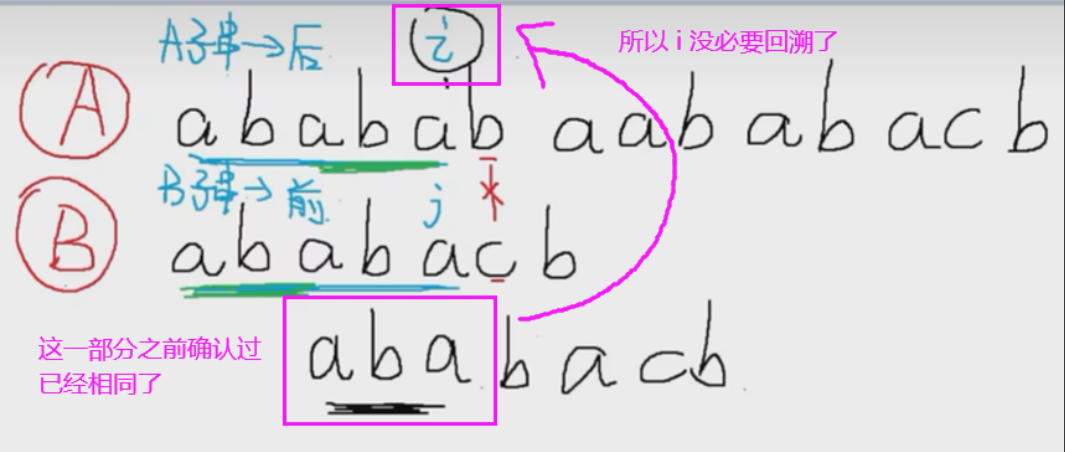 A子串→后 i 所以 i 没必要回溯了
A a b a b a b a a b a b a c b
B子串→前 j
B a b a b a c b
这一部分之前确认过
已经相同了
a b a b a c b